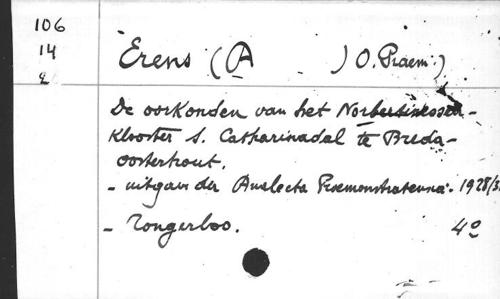 106
14
2
Erens (A ) O. Praem.)
De oorkonden van het Norbertinessen-
Klooster S. Catharinadal te Breda-
oosterhout.
- uitgave der Analecta Praemonstratensia. 1928/3
- Tongerloo. 4º